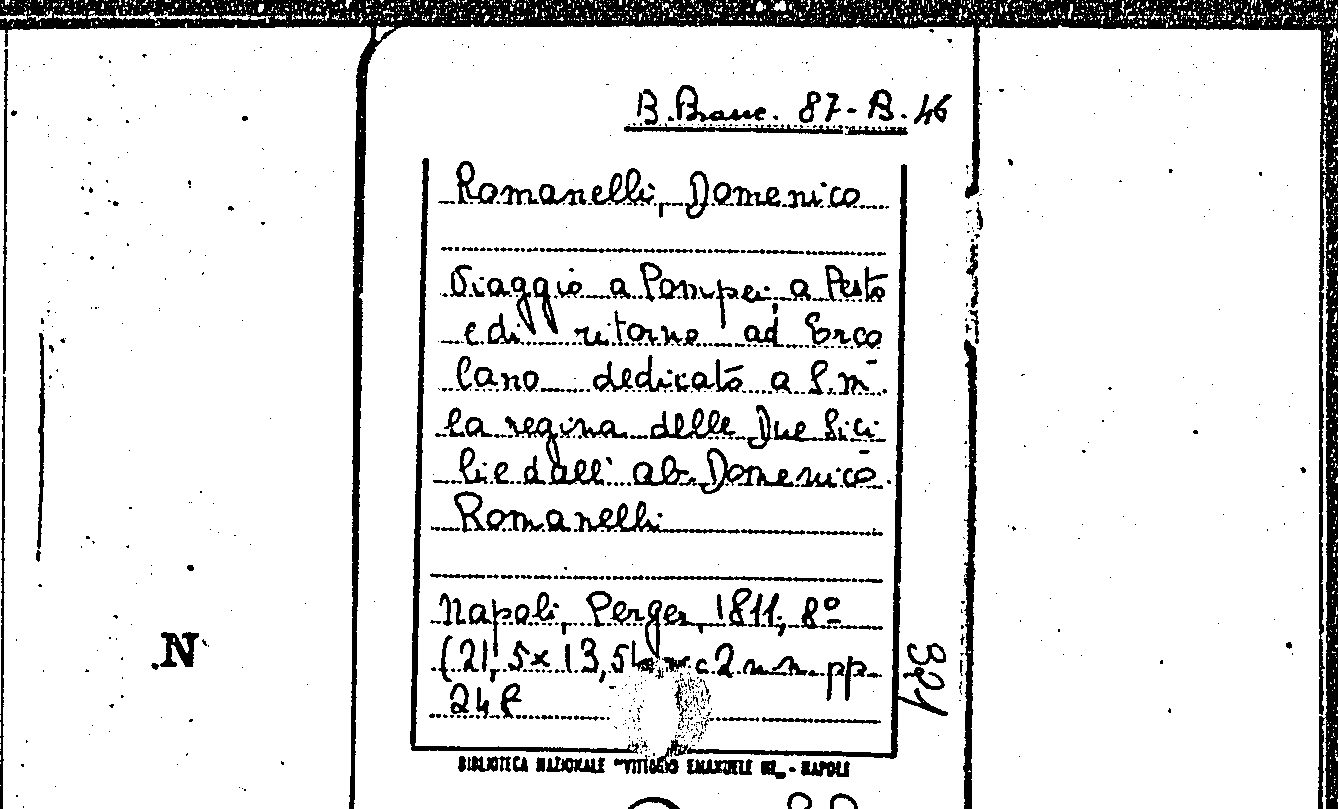 B. Branc. 87-B. 46
Romanelli, Domenico
Viaggio a Pompei, a Pesto
e di ritorno ad Erco
lano dedicato a S.M.
la regina delle Due Sici
lie dall' ab. Domenico
Romanelli
Napoli, Perger, 1811, 8º
(21,5x13,5) c 2 nn. pp.
24
321
N
BIBLIOTECA NAZIONALE "VITTORIO EMANUELE III" - NAPOLI